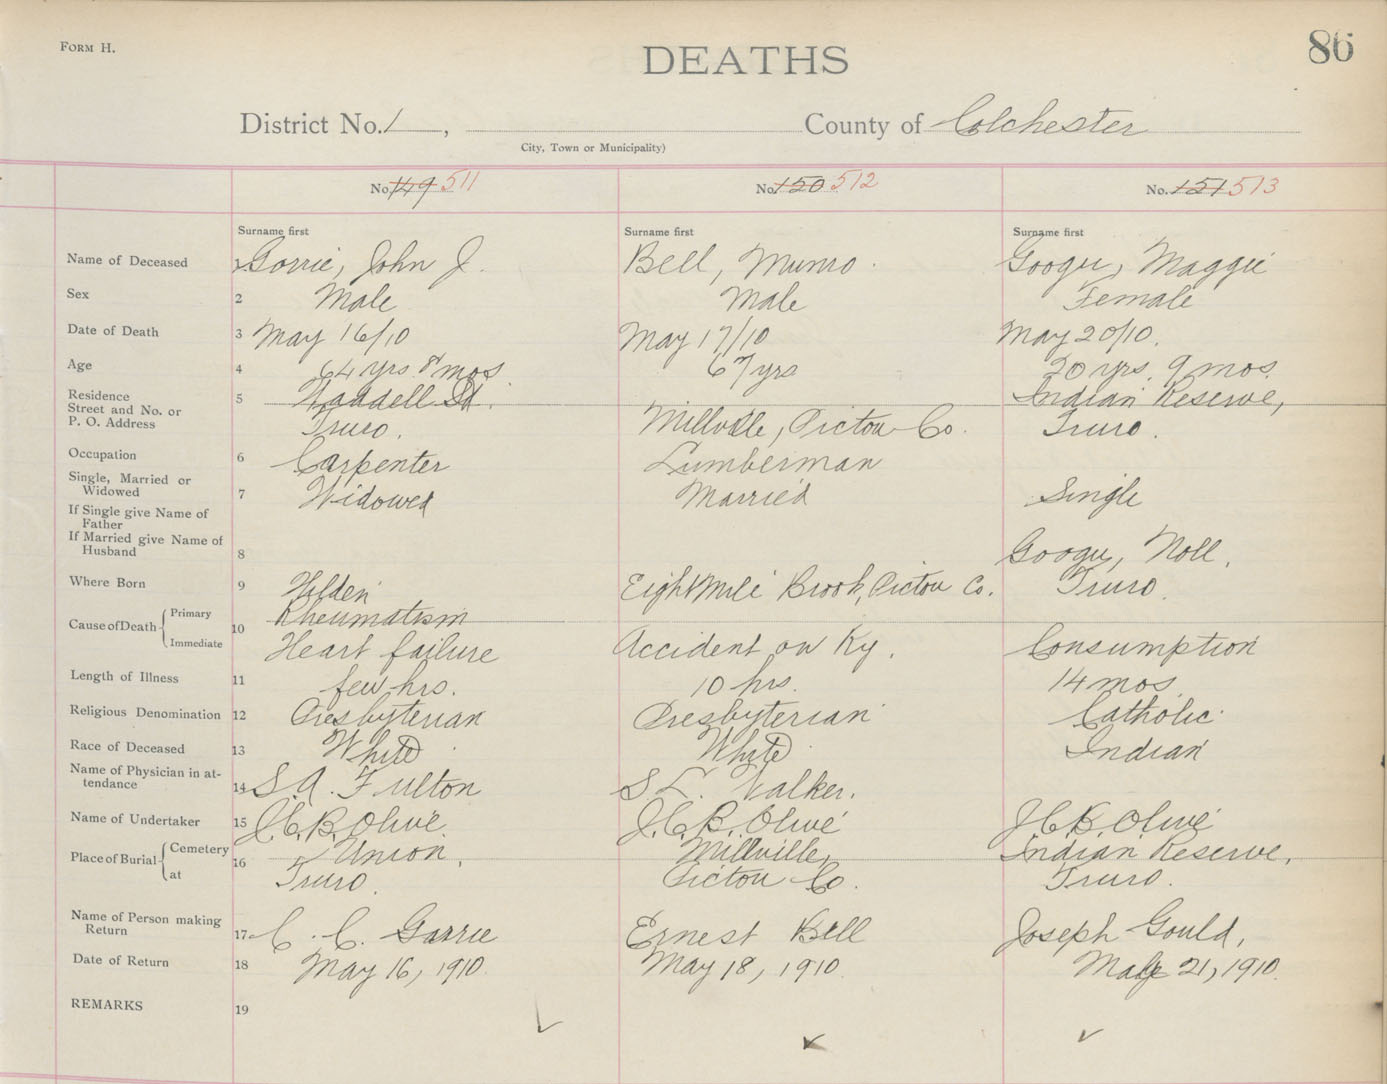 FORM H.
86
DEATHS
District No. 1, County of Colchester
City, Town or Municipality)
No. 149 511 No. 150 512 No. 151 513
Surname first Surname first Surname first
Name of Deceased 1 Gorrie, John J. Bell, Munro. Googu, Maggie
Sex 2 Male Male Female
Date of Death 3 May 16/10 May 17/10 May 20/10.
Age 4 64 yrs 8 mos 67 yrs 20 yrs. 9 mos.
Residence 5 Waddell St. Indian Reserve,
Street and No. or
P. O. Address Truro. Millville, Pictou Co. Truro.
Occupation 6 Carpenter Lumberman
Single, Married or
Widowed 7 Widowed Married Single
If Single give Name of
Father
If Married give Name of
Husband 8 Googu, Noll.
Where Born 9 Hilden Eight Mile Brook, Pictou Co. Truro.
Cause of Death Primary 10 Rheumatism
Immediate Heart failure Accident on Ry. Consumption
Length of Illness 11 few hrs. 10 hrs. 14 mos.
Religious Denomination 12 Presbyterian Presbyterian Catholic.
Race of Deceased 13 White White Indian
Name of Physician in at-
tendance 14 S. A. Fulton S L. Walker.
Name of Undertaker 15 J. C. B. Olive. J. C. B. Olive J C B. Olive
Place of Burial Cemetery 16 Union, Millville, Indian Reserve,
at Truro. Pictou Co. Truro.
Name of Person making
Return 17 C. C. Gorrie Ernest Bell Joseph Gould,
Date of Return 18 May 16, 1910. May 18, 1910. May 21, 1910.
REMARKS 19